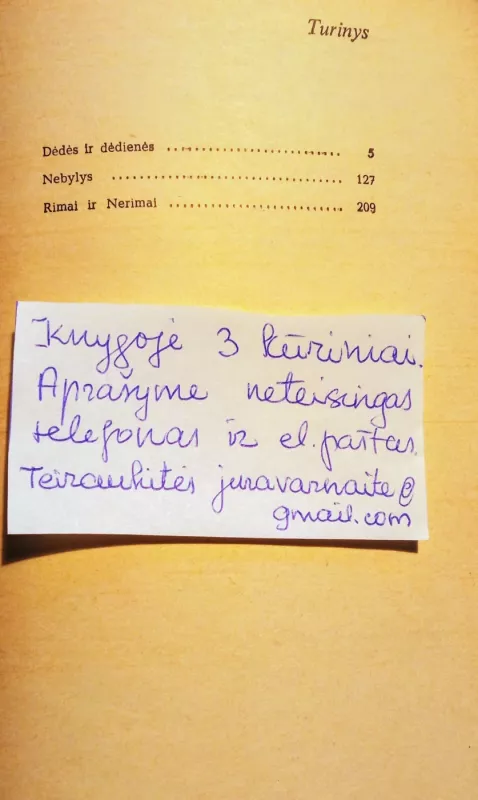 Turinys
Dėdės ir dėdienės ........................... 5
Nebylys ................................... 127
Rimai ir Nerimai .......................... 209
Knygoje 3 kūriniai.
Aprašyme neteisingas
telefonas ir el. paštas.
Teiraukitės juravarnaite@
gmail.com